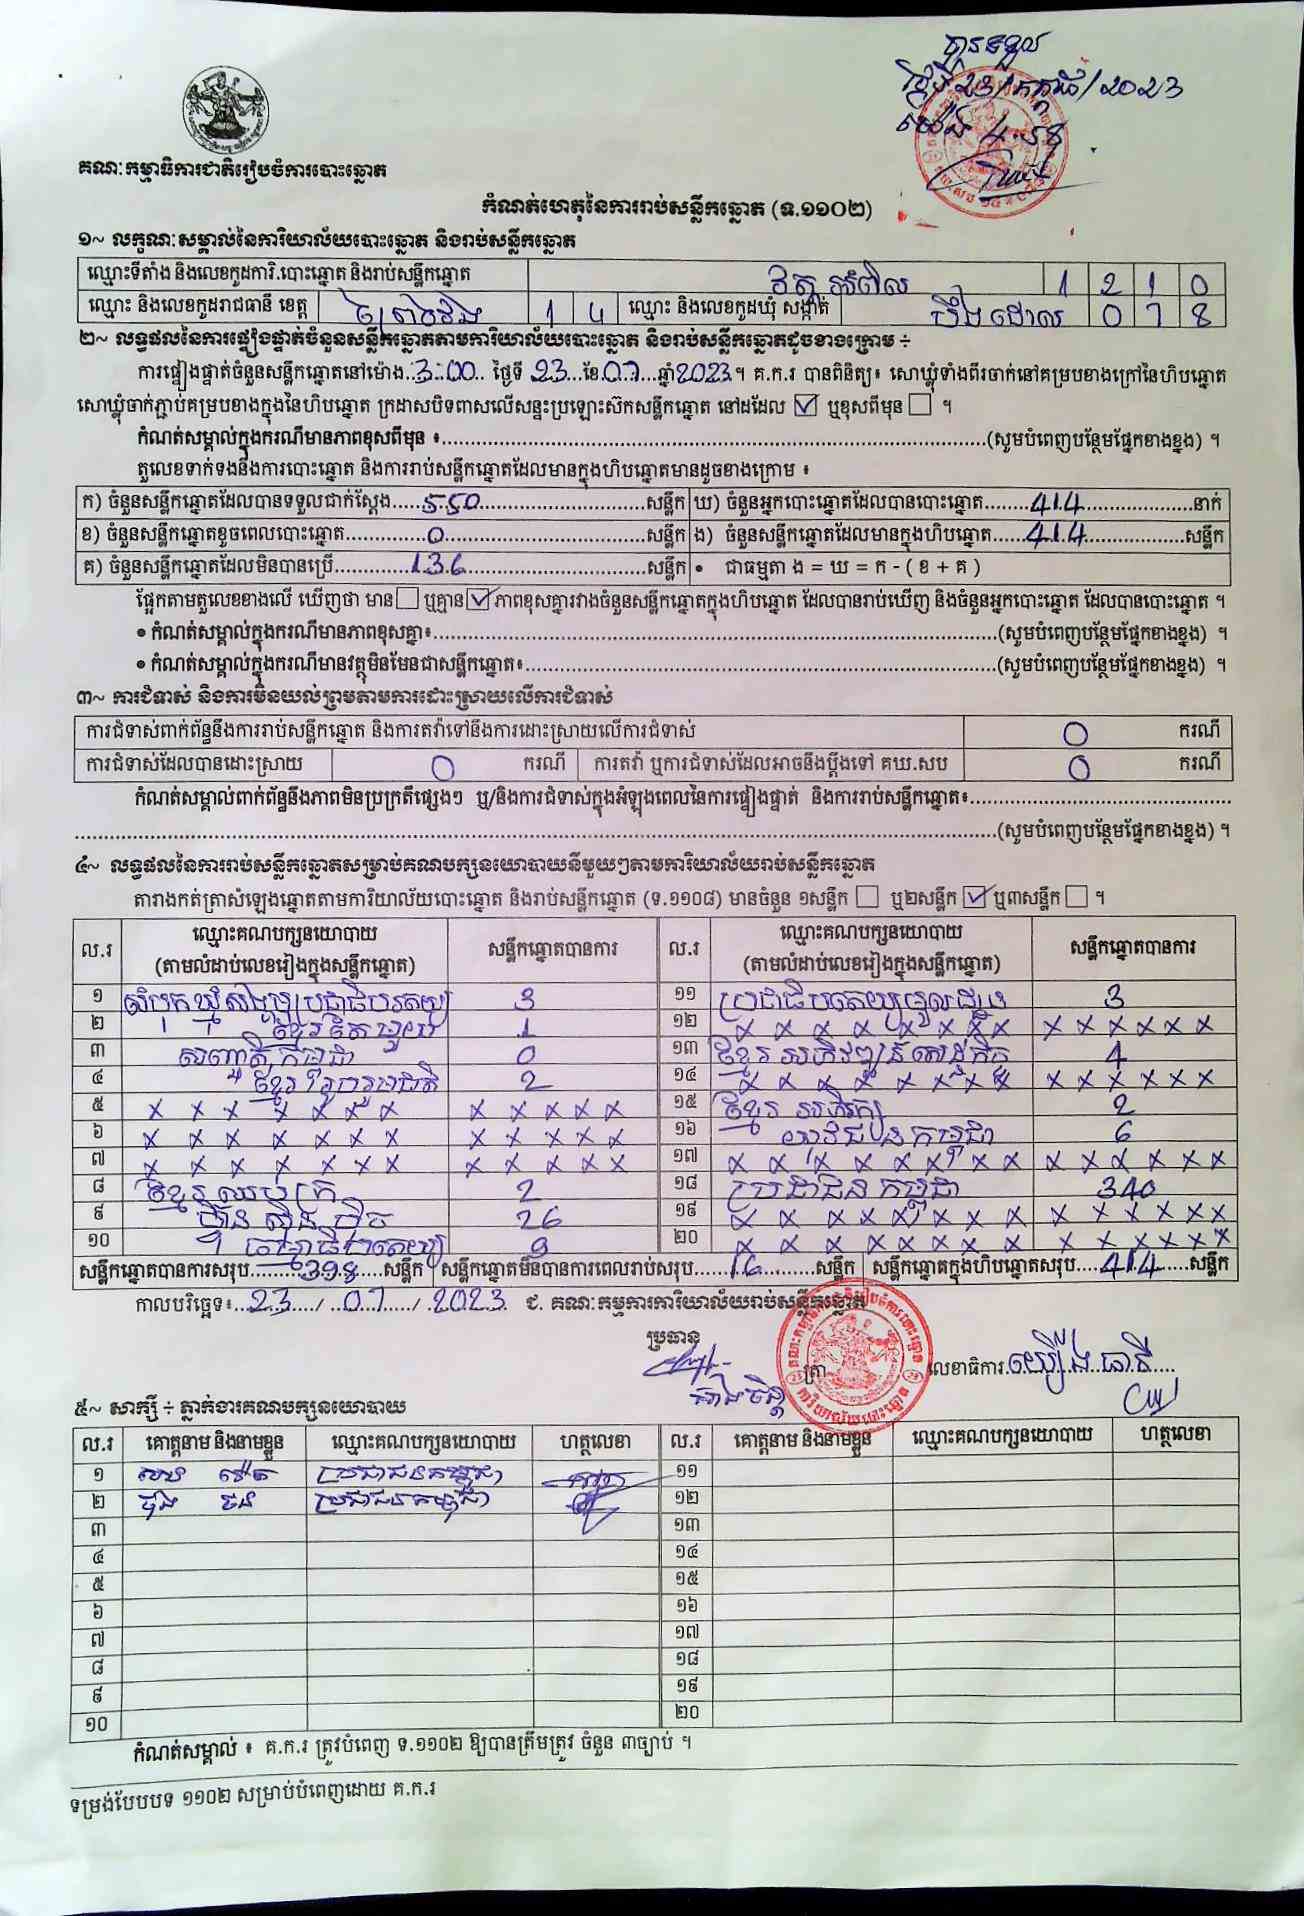 បានទទួល
ថ្ងៃទី 23/កក្កដា/2023
ម៉ោង 4:58
គណៈកម្មាធិការជាតិរៀបចំការបោះឆ្នោត
កំណត់ហេតុនៃការរាប់សន្លឹកឆ្នោត (ទ.១១០២)
១~ លក្ខណៈសម្គាល់នៃការិយាល័យបោះឆ្នោត និងរាប់សន្លឹកឆ្នោត
ឈ្មោះទីតាំង និងលេខកូដការិ.បោះឆ្នោត និងរាប់សន្លឹកឆ្នោត វត្ត អំពិល 1 2 1 0
ឈ្មោះ និងលេខកូដរាជធានី ខេត្ត ព្រៃវែង 1 4 ឈ្មោះ និងលេខកូដឃុំ សង្កាត់ បឹង ដោល 0 7 8
២~ លទ្ធផលនៃការផ្ទៀងផ្ទាត់ចំនួនសន្លឹកឆ្នោតតាមការិយាល័យបោះឆ្នោត និងរាប់សន្លឹកឆ្នោតដូចខាងក្រោម ÷
ការផ្ទៀងផ្ទាត់ចំនួនសន្លឹកឆ្នោតនៅម៉ោង 3:00 ថ្ងៃទី 23 ខែ 07 ឆ្នាំ 2023 ។ គ.ក.រ បានពិនិត្យ៖ សោឃ្លុំទាំងពីរចាក់នៅគម្របខាងក្រៅនៃហិបឆ្នោត
សោឃ្លុំចាក់ភ្ជាប់គម្របខាងក្នុងនៃហិបឆ្នោត ក្រដាសបិទពាសលើសន្ទះប្រឡោះស៊កសន្លឹកឆ្នោត នៅដដែល ☑ ឬខុសពីមុន ☐ ។
កំណត់សម្គាល់ក្នុងករណីមានភាពខុសពីមុន ៖ (សូមបំពេញបន្ថែមផ្នែកខាងខ្នង) ។
តួលេខទាក់ទងនឹងការបោះឆ្នោត និងការរាប់សន្លឹកឆ្នោតដែលមានក្នុងហិបឆ្នោតមានដូចខាងក្រោម ៖
ក) ចំនួនសន្លឹកឆ្នោតដែលបានទទួលជាក់ស្តែង 550 សន្លឹក ឃ) ចំនួនអ្នកបោះឆ្នោតដែលបានបោះឆ្នោត 414 នាក់
ខ) ចំនួនសន្លឹកឆ្នោតខូចពេលបោះឆ្នោត 0 សន្លឹក ង) ចំនួនសន្លឹកឆ្នោតដែលមានក្នុងហិបឆ្នោត 414 សន្លឹក
គ) ចំនួនសន្លឹកឆ្នោតដែលមិនបានប្រើ 136 សន្លឹក • ជាធម្មតា ង = ឃ = ក - ( ខ + គ )
ផ្អែកតាមតួលេខខាងលើ ឃើញថា មាន ☐ ឬគ្មាន ☑ ភាពខុសគ្នារវាងចំនួនសន្លឹកឆ្នោតក្នុងហិបឆ្នោត ដែលបានរាប់ឃើញ និងចំនួនអ្នកបោះឆ្នោត ដែលបានបោះឆ្នោត ។
• កំណត់សម្គាល់ក្នុងករណីមានភាពខុសគ្នា៖ (សូមបំពេញបន្ថែមផ្នែកខាងខ្នង) ។
• កំណត់សម្គាល់ក្នុងករណីមានវត្ថុមិនមែនជាសន្លឹកឆ្នោត៖ (សូមបំពេញបន្ថែមផ្នែកខាងខ្នង) ។
៣~ ការជំទាស់ និងការមិនយល់ព្រមតាមការដោះស្រាយលើការជំទាស់
ការជំទាស់ពាក់ព័ន្ធនឹងការរាប់សន្លឹកឆ្នោត និងការតវ៉ាទៅនឹងការដោះស្រាយលើការជំទាស់ 0 ករណី
ការជំទាស់ដែលបានដោះស្រាយ 0 ករណី ការតវ៉ា ឬការជំទាស់ដែលអាចនឹងប្តឹងទៅ គឃ.សប 0 ករណី
កំណត់សម្គាល់ពាក់ព័ន្ធនឹងភាពមិនប្រក្រតីផ្សេងៗ ឬ/និងការជំទាស់ក្នុងអំឡុងពេលនៃការផ្ទៀងផ្ទាត់ និងការរាប់សន្លឹកឆ្នោត៖
(សូមបំពេញបន្ថែមផ្នែកខាងខ្នង) ។
៤~ លទ្ធផលនៃការរាប់សន្លឹកឆ្នោតសម្រាប់គណបក្សនយោបាយនីមួយៗតាមការិយាល័យរាប់សន្លឹកឆ្នោត
តារាងកត់ត្រាសំឡេងឆ្នោតតាមការិយាល័យបោះឆ្នោត និងរាប់សន្លឹកឆ្នោត (ទ.១១០៨) មានចំនួន ១សន្លឹក ☐ ឬ២សន្លឹក ☑ ឬ៣សន្លឹក ☐ ។
ល.រ ឈ្មោះគណបក្សនយោបាយ (តាមលំដាប់លេខរៀងក្នុងសន្លឹកឆ្នោត) សន្លឹកឆ្នោតបានការ ល.រ ឈ្មោះគណបក្សនយោបាយ (តាមលំដាប់លេខរៀងក្នុងសន្លឹកឆ្នោត) សន្លឹកឆ្នោតបានការ
១ សំបុកឃ្មុំសង្គមប្រជាធិបតេយ្យ 3 ១១ ប្រជាធិបតេយ្យមូលដ្ឋាន 3
២ ខ្មែរតែមួយ 1 ១២ x x x x x x x x x x x x x x
៣ សញ្ជាតិកម្ពុជា 0 ១៣ ខ្មែរ អភិវឌ្ឍន៍ សេដ្ឋកិច្ច 4
៤ ខ្មែររួបរួមជាតិ 2 ១៤ x x x x x x x x x x x x x x
៥ x x x x x x x x x x x x x ១៥ ខ្មែរ អភិរក្ស 2
៦ x x x x x x x x x x x x x ១៦ យុវជនកម្ពុជា 6
៧ x x x x x x x x x x x x x ១៧ x x x x x x x x x x x x x x x
៨ ខ្មែរឈប់ក្រ 2 ១៨ ប្រជាជនកម្ពុជា 340
៩ ហ៊្វុនស៊ិនប៉ិច 26 ១៩ x x x x x x x x x x x x x x x
១០ ធម្មាធិបតេយ្យ 9 ២០ x x x x x x x x x x x x x x
សន្លឹកឆ្នោតបានការសរុប 398 សន្លឹក សន្លឹកឆ្នោតមិនបានការពេលរាប់សរុប 16 សន្លឹក សន្លឹកឆ្នោតក្នុងហិបឆ្នោតសរុប 414 សន្លឹក
កាលបរិច្ឆេទ៖ 23 / 07 / 2023 ជ. គណៈកម្មការការិយាល័យរាប់សន្លឹកឆ្នោត
ប្រធាន ត្រា លេខាធិការ
៥~ សាក្សី ÷ ភ្នាក់ងារគណបក្សនយោបាយ
ល.រ គោត្តនាម និងនាមខ្លួន ឈ្មោះគណបក្សនយោបាយ ហត្ថលេខា ល.រ គោត្តនាម និងនាមខ្លួន ឈ្មោះគណបក្សនយោបាយ ហត្ថលេខា
១ ប្រជាជនកម្ពុជា ១១
២ ប្រជាជនកម្ពុជា ១២
៣ ១៣
៤ ១៤
៥ ១៥
៦ ១៦
៧ ១៧
៨ ១៨
៩ ១៩
១០ ២០
កំណត់សម្គាល់ ៖ គ.ក.រ ត្រូវបំពេញ ទ.១១០២ ឱ្យបានត្រឹមត្រូវ ចំនួន ៣ច្បាប់ ។
ទម្រង់បែបបទ ១១០២ សម្រាប់បំពេញដោយ គ.ក.រ